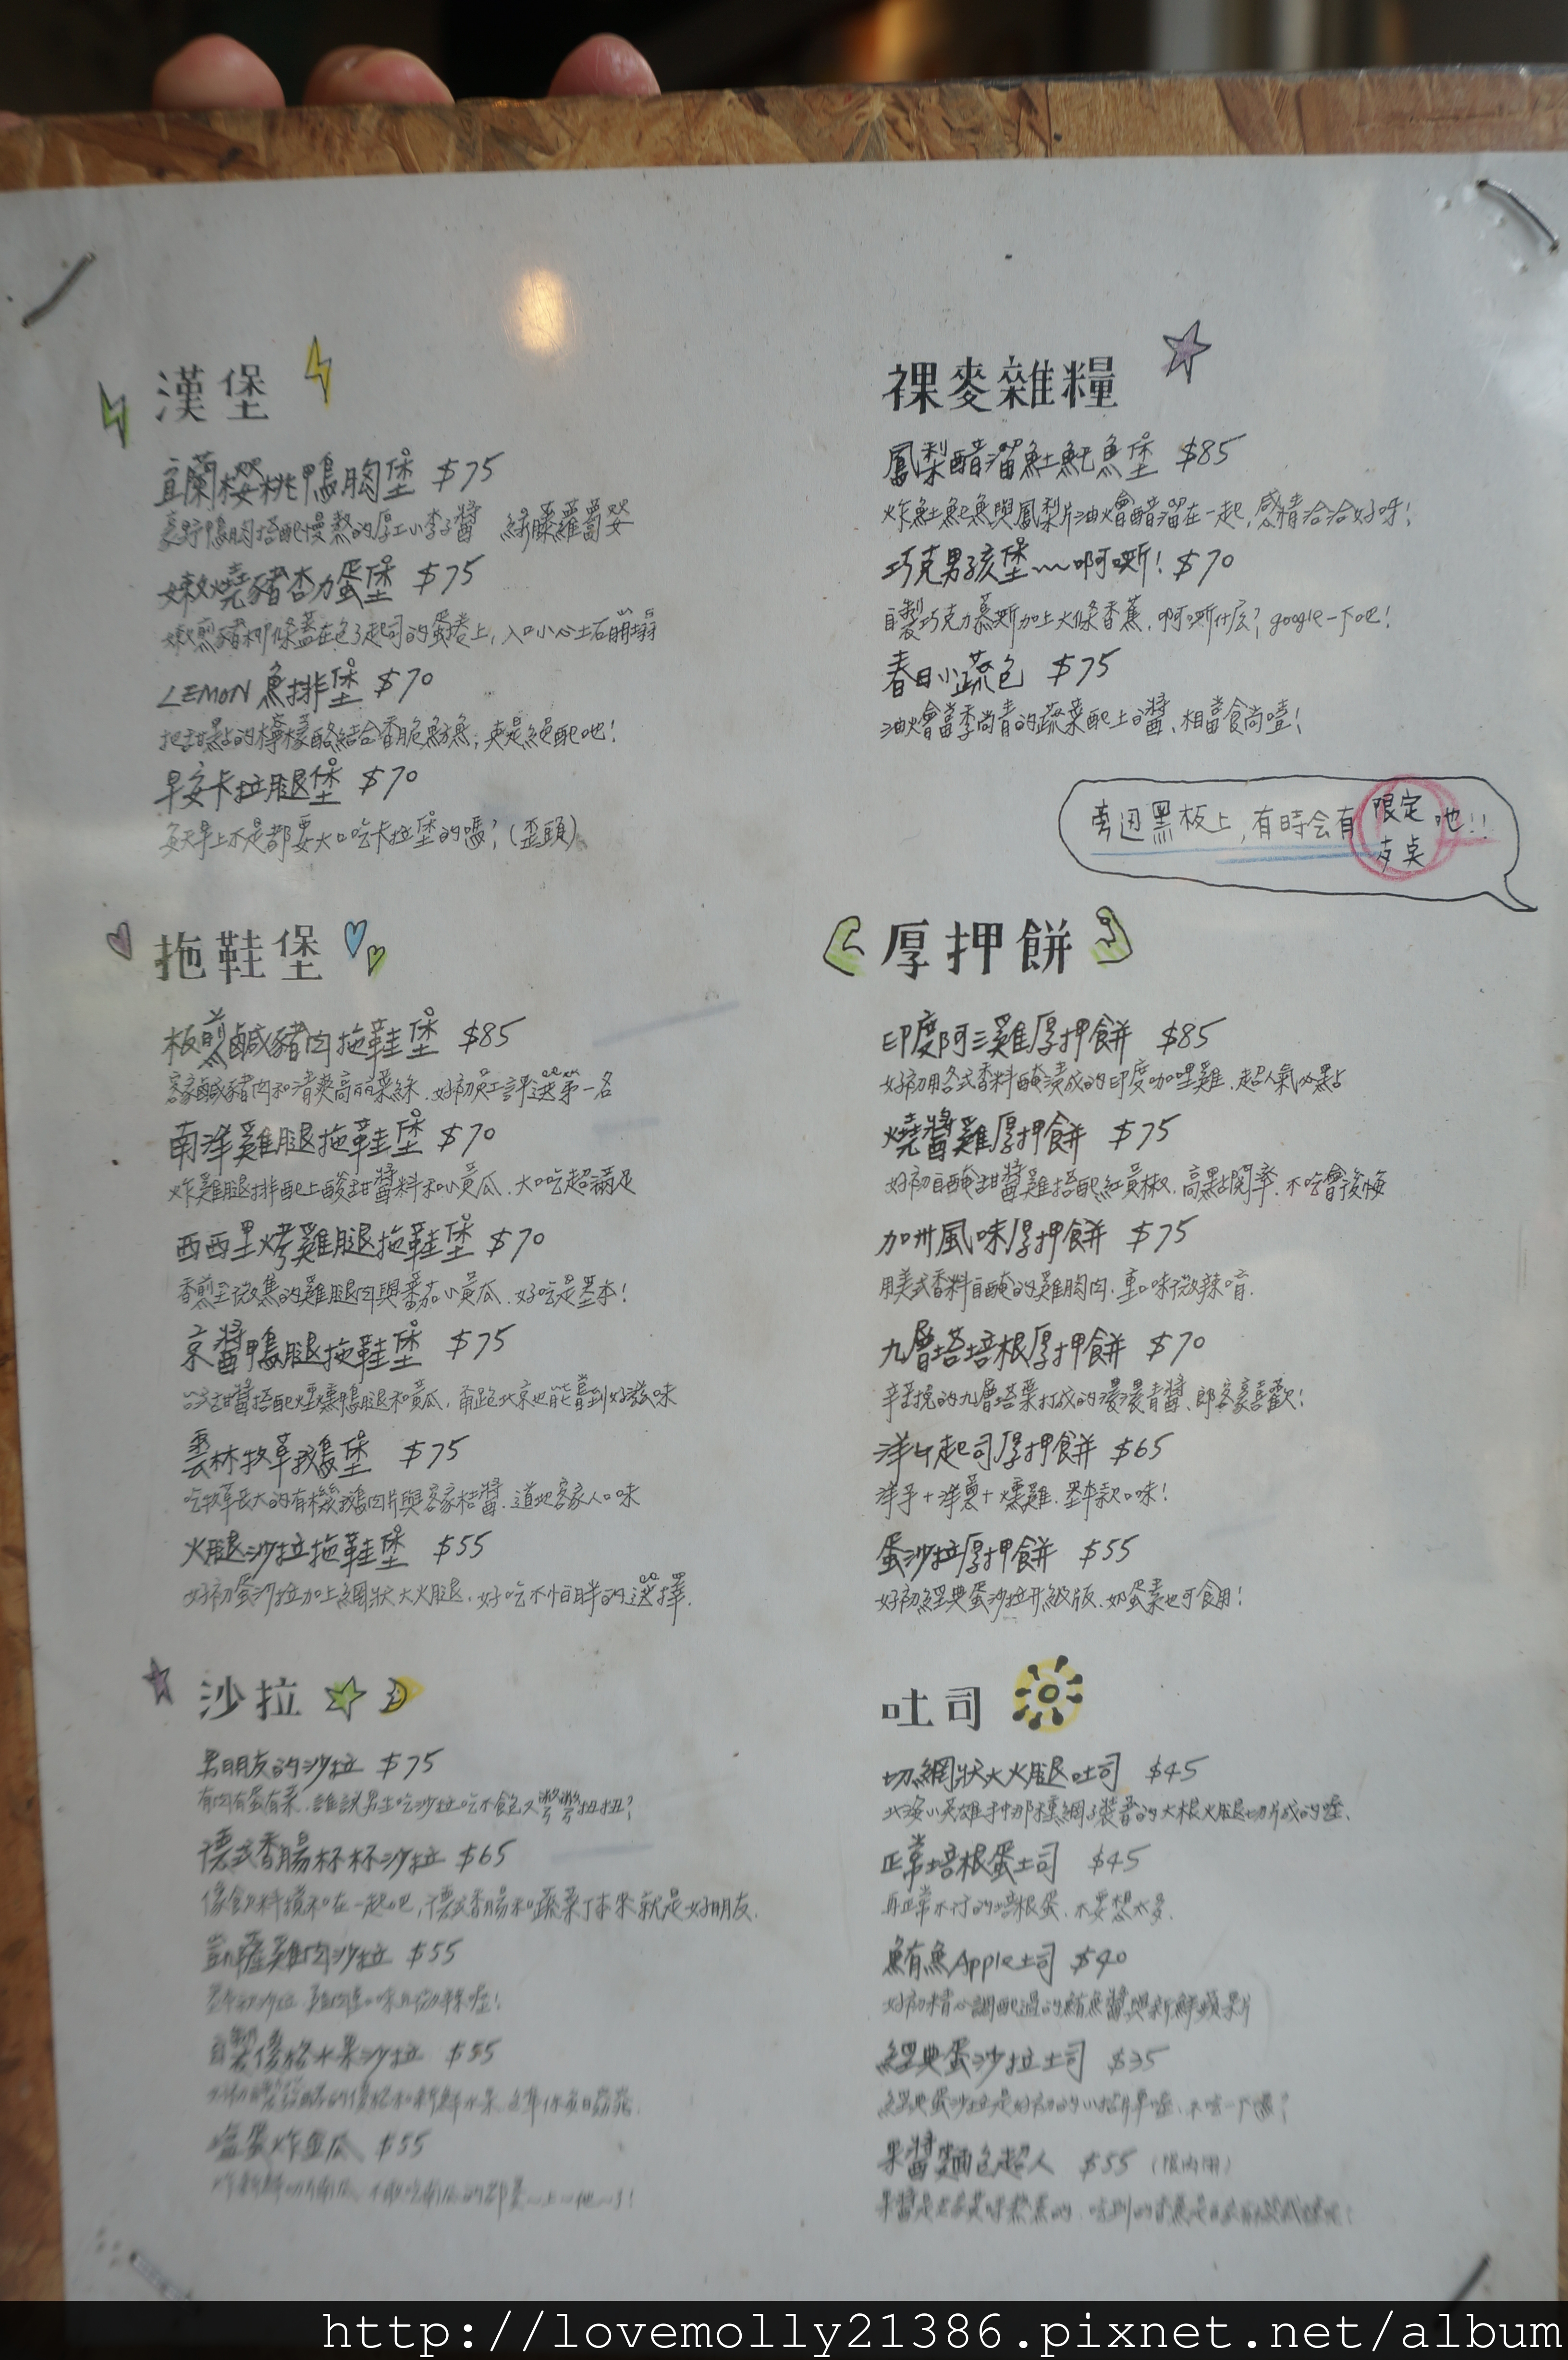 漢堡
宜蘭櫻桃鴨胸堡 $75
豪野鴨胸搭配慢熬的厚工小李子醬
嫩燒豬杏力蛋堡 $75
嫩煎豬柳條蓋在包了起司的蛋捲上,入口小心土石崩塌
LEMON 魚排堡 $70
把甜點的檸檬酪結合香脆魚,真是絕配吔!
早安卡拉腿堡 $70
每天早上不是都要大口吃卡拉堡的嗎?(歪頭)
拖鞋堡
板煎鹹豬肉拖鞋堡 $85
客家鹹豬肉和清爽高麗菜絲.好初員工評選第一名
南洋雞腿拖鞋堡 $70
炸雞腿排配上酸甜醬料和小黃瓜.大口吃超滿足
西西里烤雞腿拖鞋堡 $70
香煎至微焦的雞腿肉與番茄小黃瓜.好吃是基本!
京醬鴨腿拖鞋堡 $75
甜醬搭配煙燻鴨腿和黃瓜,甭跑北京也能嘗到好滋味
雲林牧草鵝堡 $75
吃牧草長大的有機鵝肉片與客家桔醬.道地客家人口味
火腿沙拉拖鞋堡 $55
好初蛋沙拉加上網狀大火腿.好吃不怕胖的選擇.
沙拉
男朋友的沙拉 $75
有肉有蛋有菜.誰說男生吃沙拉吃不飽又彆彆扭扭?
德式香腸杯杯沙拉 $65
像飲料攪和在一起吧,德式香腸和蔬菜丁本來就是好朋友.
凱薩雞肉沙拉 $55
自製優格水果沙拉 $55
鹽蛋炸南瓜 $55
裸麥雜糧
鳳梨醋溜魠魠魚堡 $85
炸魠魠魚與鳳梨片油燴醋溜在一起,感情洽洽好呀!
巧克男孩堡~~啊嘶! $70
自製巧克力慕斯加上大條香蕉.啊嘶什么?google一下吧!
春日小蔬包 $75
油燴當季尚青的蔬菜配上醬、相當食尚噎!
旁邊黑板上,有時会有限定支桌吔!!
厚押餅
印度阿三雞厚押餅 $85
好初用各式香料醃漬成的印度咖哩雞.超人氣必點
燒醬雞厚押餅 $75
好初自醃甜醬雞搭配紅黃椒.高點閱率.不吃會後悔
加卅風味厚押餅 $75
用美式香料自醃的雞胸肉.重口味微辣唷.
九層塔培根厚押餅 $70
辛苦挽的九層塔葉打成的濃濃青醬、郎客豪喜歡!
洋芋起司厚押餅 $65
洋芋+洋蔥+燻雞.基本款口味!
蛋沙拉厚押餅 $55
好初經典蛋沙拉升級版.奶蛋素也可食用!
吐司
切網狀大火腿吐司 $45
北海小英雄手中那種網子裝著的大根火腿切片成的噎.
正常培根蛋土司 $45
再正常不行的培根蛋.不要想太多.
鮪魚Apple土司 $40
好初精心調配過的鮪魚醬與新鮮蘋果片
經典蛋沙拉土司 $35
經典蛋沙拉是好初的小招牌單噎.不嚐一下嗎?
果醬麵包超人 $55 (限內用)
http://lovemolly21386.pixnet.net/album